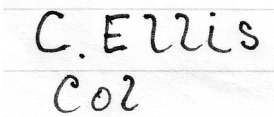 C. Ellis
Col